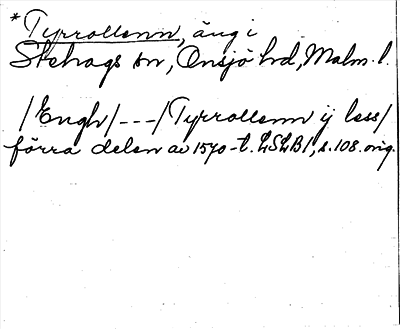 *Tyrrollenn, äng i
Stehags sn, Onsjö hd, Malm. l.
/Engh/---/Tyrrollenn ij less/
förra delen av 1570-t. LSLB1, s. 108. orig.